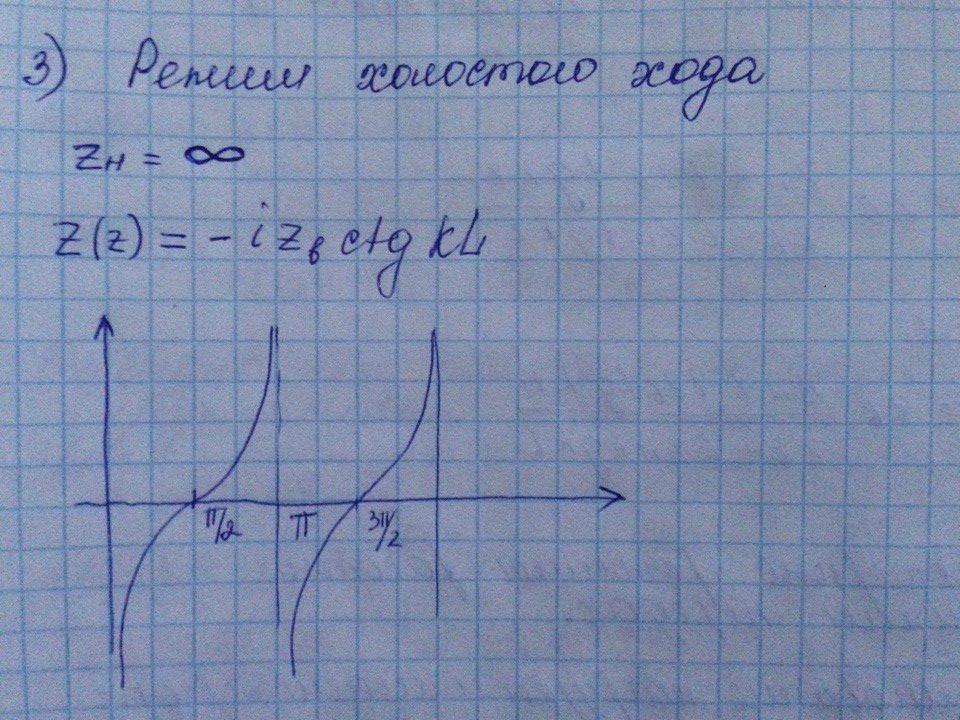 3) Режим холостого хода
zн = ∞
Z(z) = - i zв ctg kL
π/2 π 3π/2